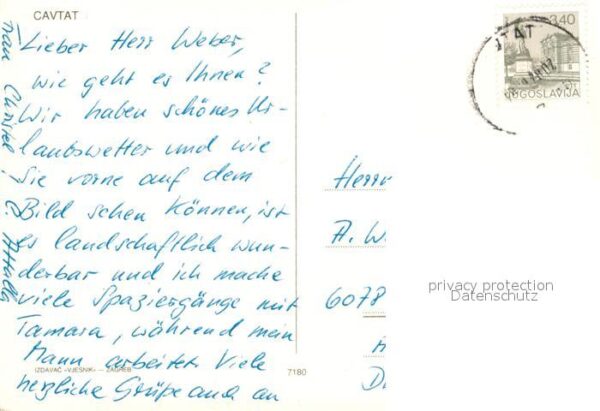 CAVTAT
Lieber Herr Weber,
wie geht es Ihnen?
Wir haben schönes Ur-
laubswetter und wie
Sie vorne auf dem
Bild sehen können, ist
es landschaftlich wun-
derbar und ich mache
viele Spaziergänge mit
Tamara, während mein
Mann arbeitet. Viele
herzliche Grüße auch an
Frau Christel!
IZDAVAČ »VJESNIK« — ZAGREB
7180
3.40
JUGOSLAVIJA
Herrn
A. W
6078
privacy protection
Datenschutz